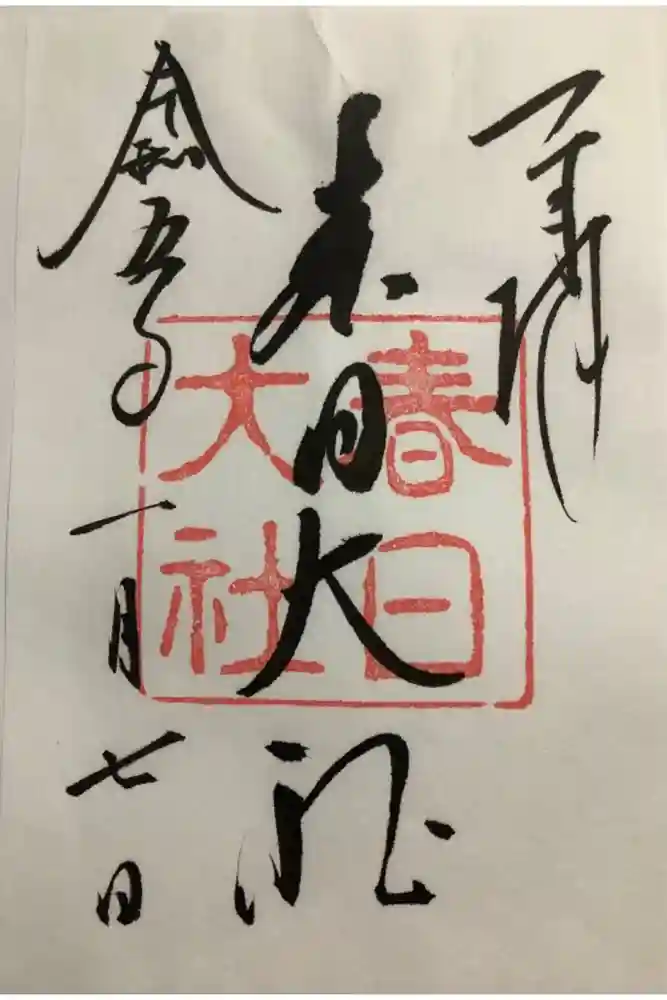 奉拝
春日大社
令和五年一月七日
春日
大社